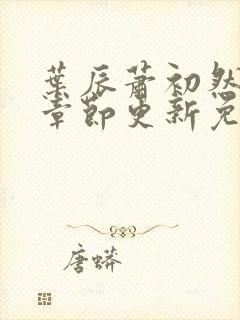 葉辰蕭初然
章節更新免
唐蟒